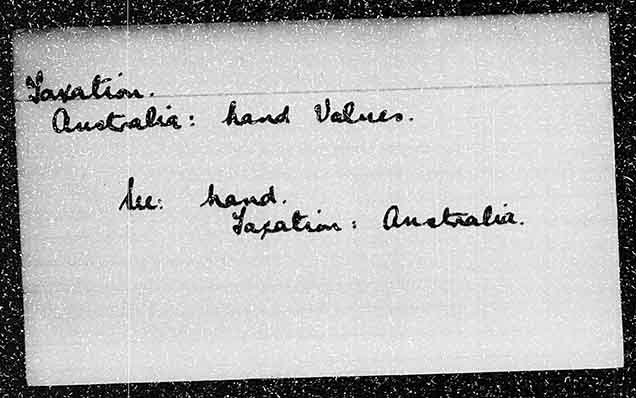 Taxation.
Australia: Land Values.
See: Land.
Taxation: Australia.